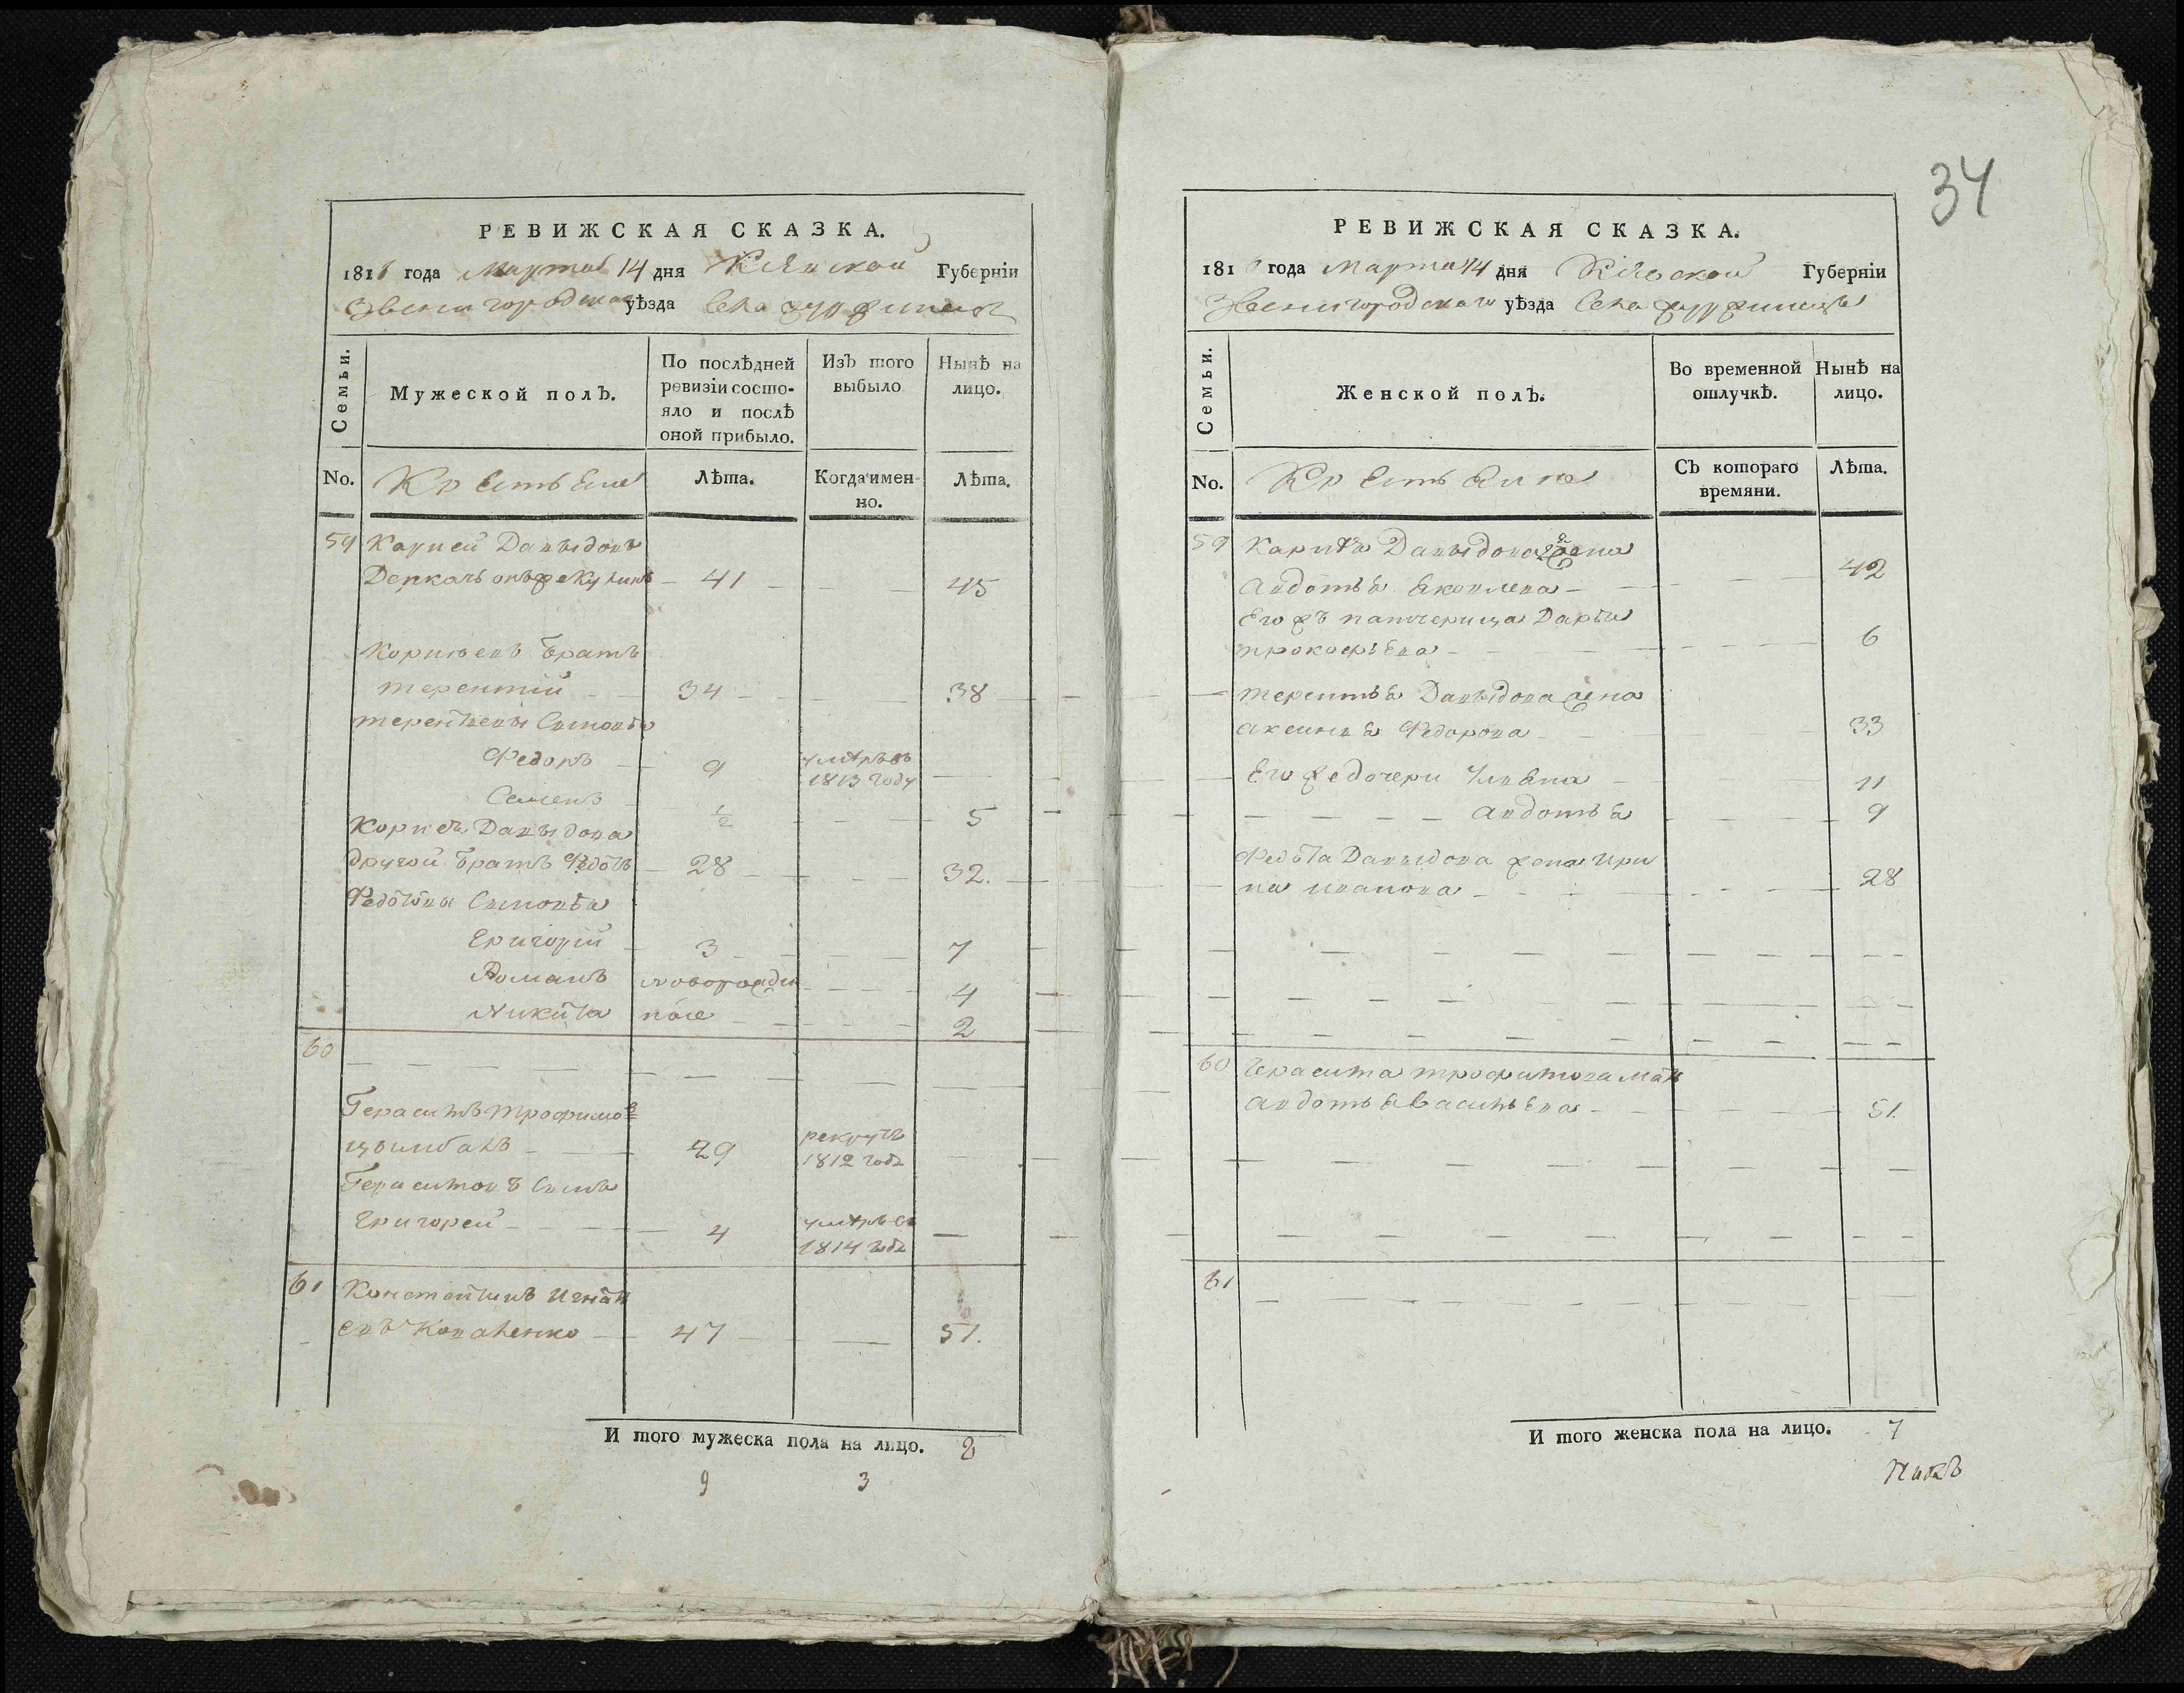 РЕВИЖСКАЯ СКАЗКА.
1816 года Марта 14 дня Кіевской Губерніи
Звенигородскаго уѣзда Села
Семьи.
Мужеской полъ.
По послѣдней ревизіи состо-
яло и послѣ
оной прибыло.
Изъ того
выбыло
Нынѣ на
лицо.
No.
Крестьяне
Лѣта.
Когда имен-
но.
Лѣта.
59 Карней Давыдовъ
Деркачь онъже 41 45
Корнѣевъ братъ
терентій 34 38
терентьевы Сыновья
Федоръ 9 умѣръ въ
1813 году
Семенъ ½ 5
Корнея Давыдова
другой братъ Федотъ 28 32.
Федотовы Сыновья
Григорій 3 7
Романъ новорожден 4
Никита ные 2
60
Герасимъ трофимовъ
цымбалъ 29 рекрутъ
1812 года
Герасимовъ Сынъ
Григорей 4 умѣръ въ
1814 года
61 Константинъ Игнать
евъ Коваленко 47 51.
И того мужеска пола на лицо. 8
9 3
34
РЕВИЖСКАЯ СКАЗКА.
1816 года Марта 14 дня Кіевской Губерніи
Звенигородскаго уѣзда Села
Семьи.
Женской полъ.
Во временной
отлучкѣ.
Нынѣ на
лицо.
No.
Крестьянка
Съ котораго
времяни.
Лѣта.
59 Карнѣя Давыдова 2я жена
Авдотья Яковлева 42
Его жъ патчерица Дарья
прокофьева 6
терентья Давыдова жена
Аксинья Федорова 33
Его же дочери Ульяна 11
Авдотья 9
Федота Давыдова жена Ири
на Иванова 28
60 Герасима трофимова мать
Авдотья Васильева 51.
61
И того женска пола на лицо. 7